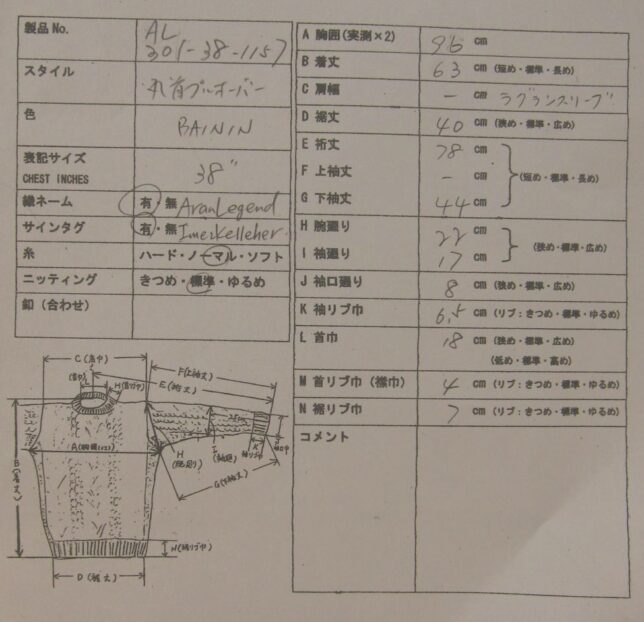 製品No.
AL
301-38-1157
スタイル
丸首プルオーバー
色
BAININ
表記サイズ
CHEST INCHES
38"
織ネーム
有・無 AranLegend
サインタグ
有・無 Imerkelleher
糸
ハード・ノーマル・ソフト
ニッティング
きつめ・標準・ゆるめ
釦（合わせ）
A 胸囲(実測×2)
96 cm
B 着丈
63 cm (短め・標準・長め)
C 肩幅
- cm ラグランスリーブ
D 裾丈
40 cm (狭め・標準・広め)
E 裄丈
78 cm
F 上袖丈
- cm (短め・標準・長め)
G 下袖丈
44 cm
H 腕廻り
22 cm
(狭め・標準・広め)
I 袖廻り
17 cm
J 袖口廻り
8 cm (狭め・標準・広め)
K 袖リブ巾
6,5 cm (リブ：きつめ・標準・ゆるめ)
L 首巾
18 cm (狭め・標準・広め)
(低め・標準・高め)
M 首リブ巾（襟巾）
4 cm (リブ：きつめ・標準・ゆるめ)
N 裾リブ巾
7 cm (リブ：きつめ・標準・ゆるめ)
コメント
C(肩巾)
F(上袖丈)
E(裄丈)
B(着丈)
H
I
K
袖リブ巾
G(下袖丈)
N(裾リブ巾)
D(裾丈)